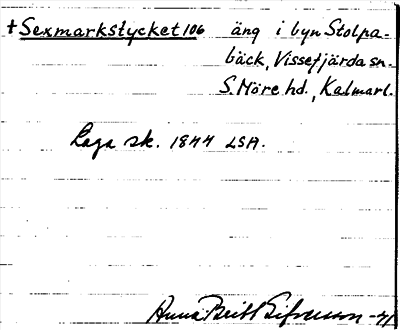 + Sexmarkstycket 106 äng i byn Stolpa-
bäck, Vissefjärda sn.
S. Möre hd., Kalmarl.
Laga sk. 1844 LSA.
Anna Britt